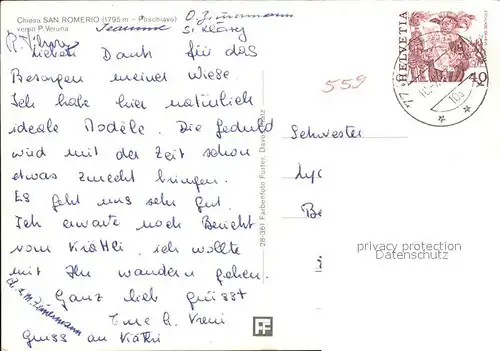 Chiesa SAN ROMERIO (1795 m - Poschiavo)
verso P. Veruna
O. Zimmermann
Jeanne
St. Klary
Lieben Dank für das
Besorgen meiner Wiese.
Ich habe hier natürlich
ideale Modèle. Die Geduld
wird mit der Zeit schon
etwas zurecht bringen.
Es geht uns sehr gut.
Ich erwarte noch Bericht
vom Kräthli, ich wollte
mit Ihr wandern gehen.
Ganz lieb grüsst
Eure h. Vreni
Gruss an Käthi
Zimmermann
28-361 Farbenfoto Furter, Davos-Platz
FF
559
HELVETIA
40
Schwester
Be
privacy protection
VERONCARDS